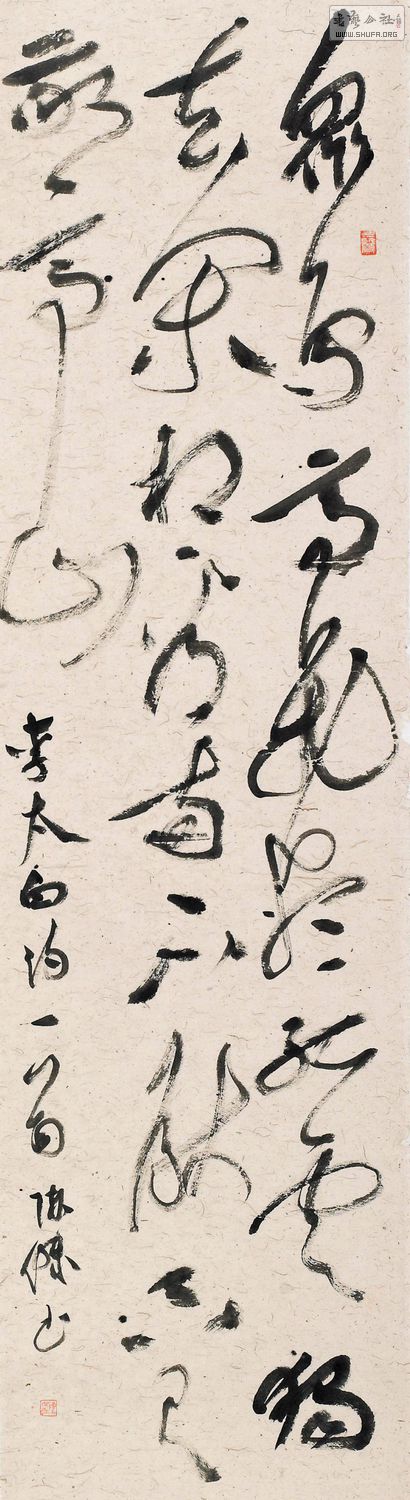 眾鳥高飛盡孤雲獨
去閑相看兩不厭只有
敬亭山
李太白詩一首 书
书法公社
WWW.SHUFA.ORG